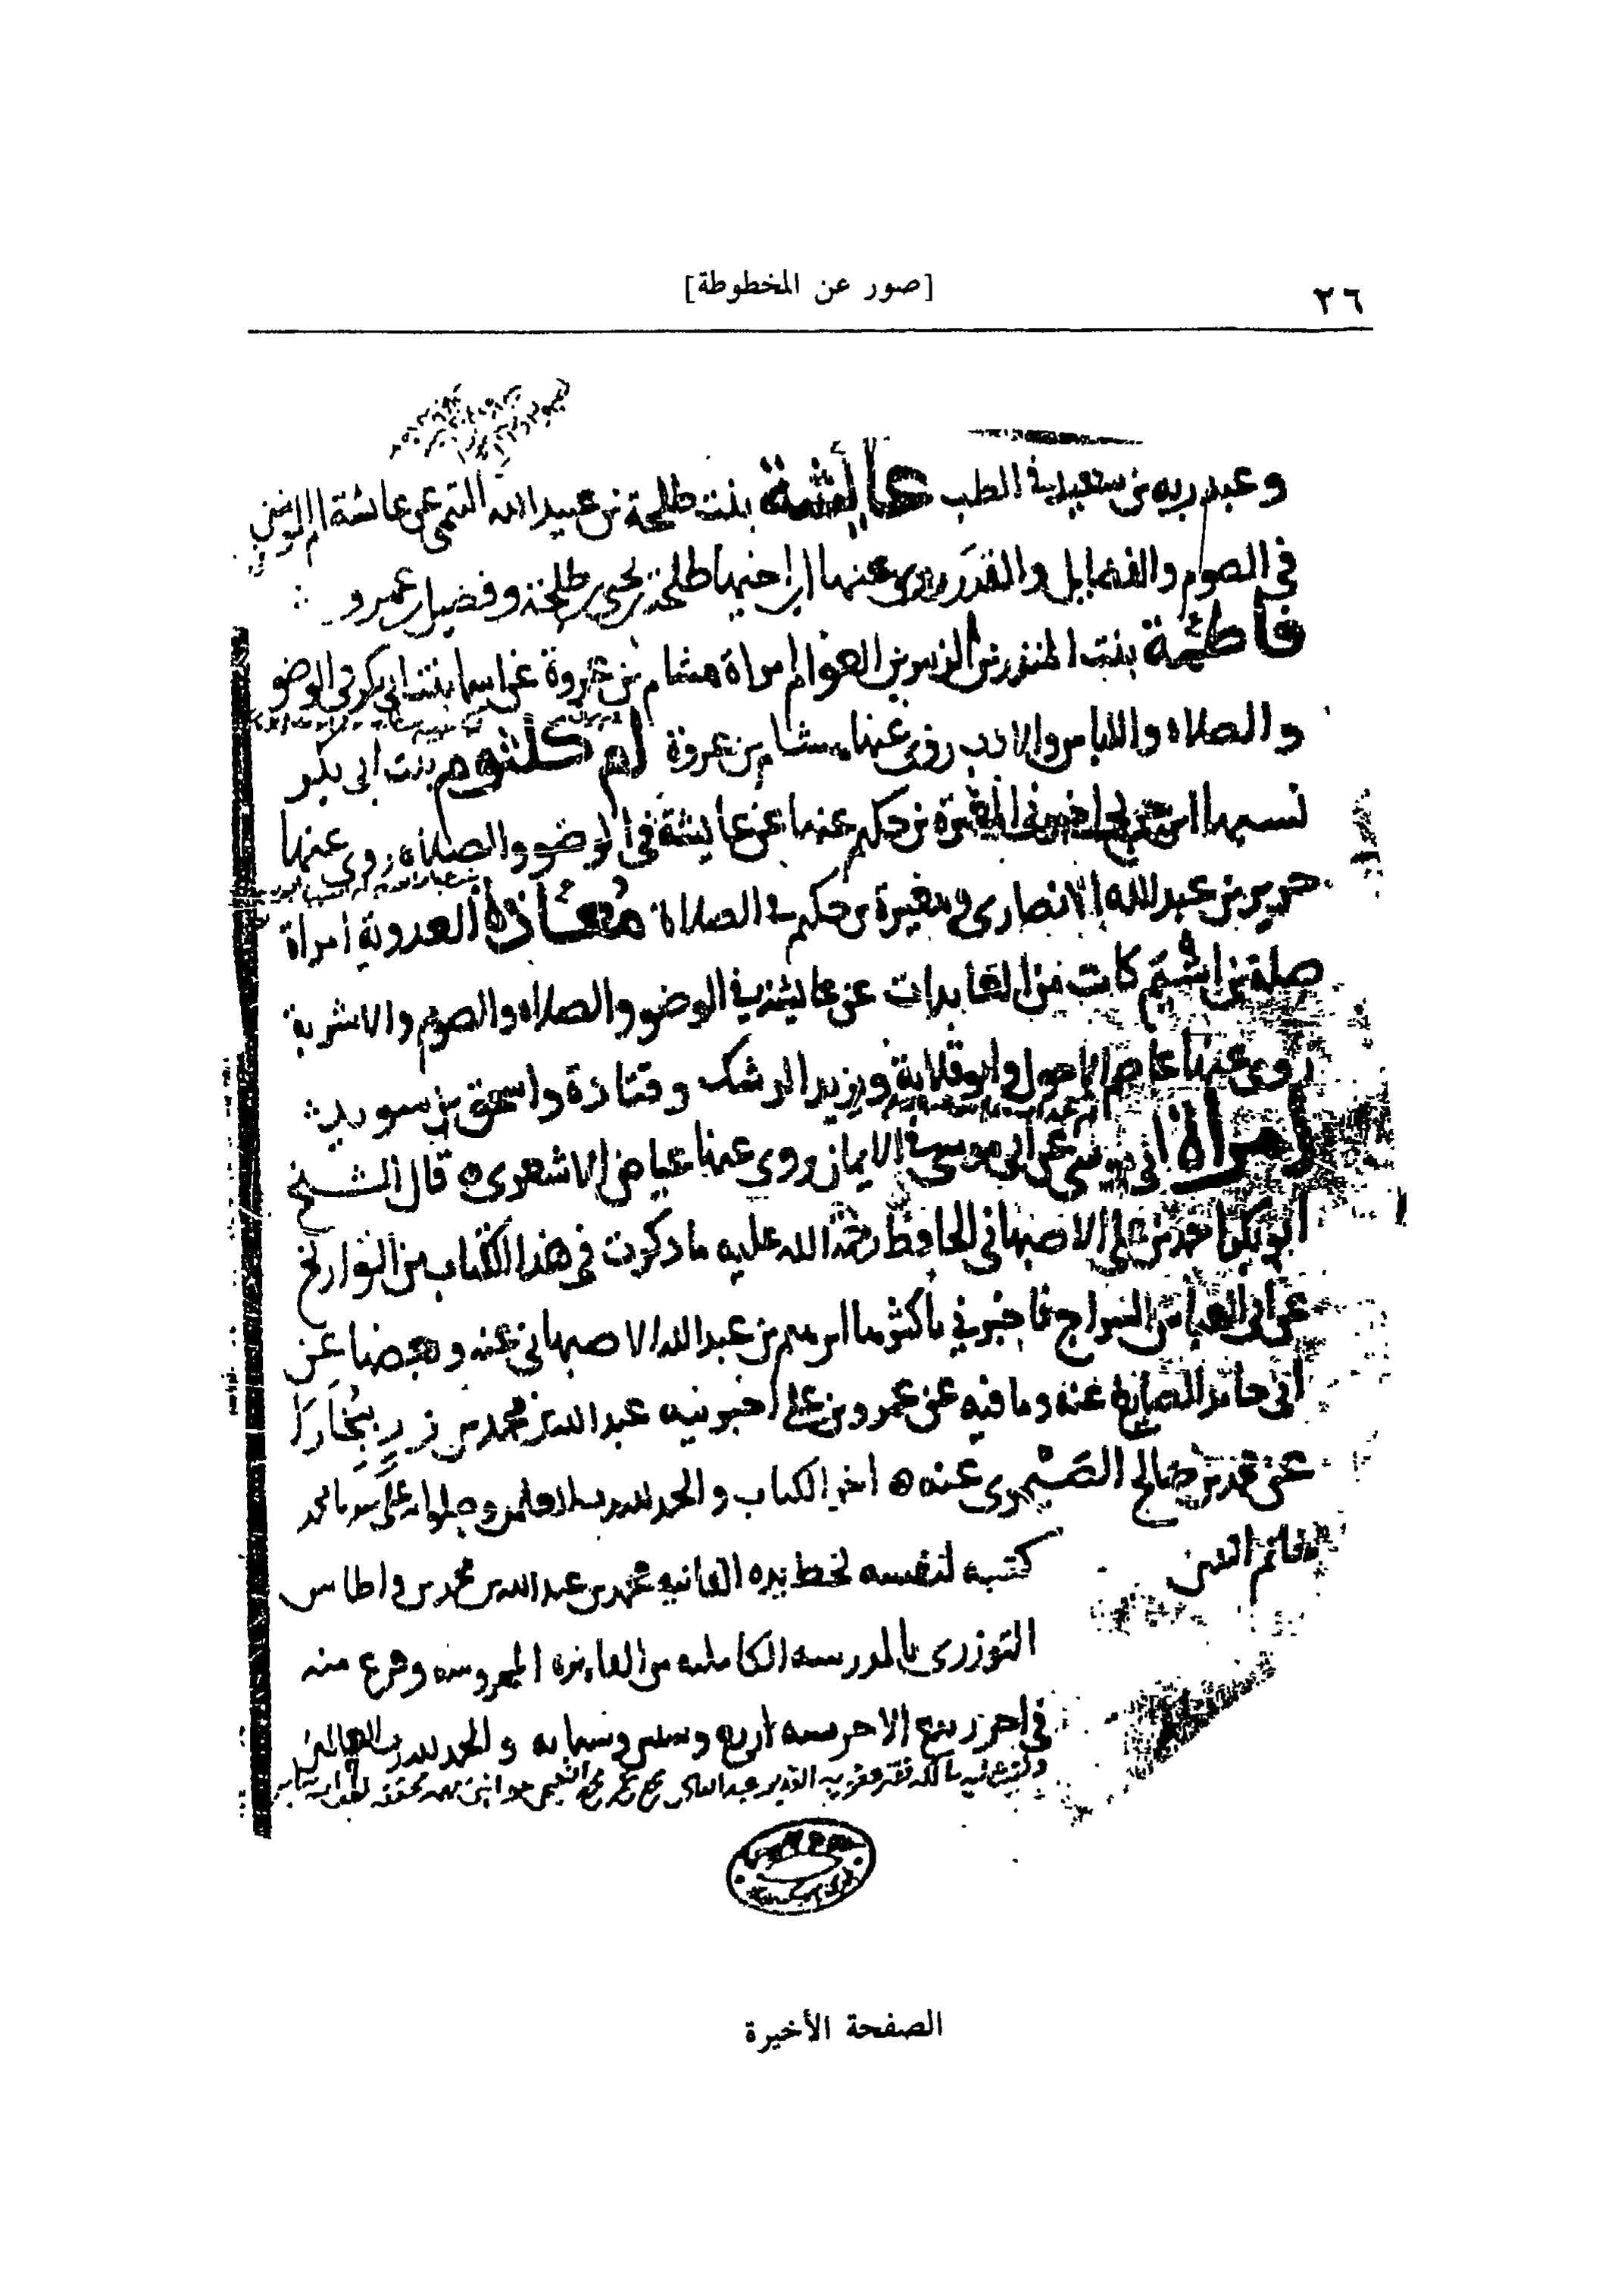 ٢٦
[صور عن المخطوطة]
وعبد ربه بن سعيد في الطب عائشة بنت طلحة بن عبيد الله التيمي عن عائشة ام المومنين
في الصوم والفضايل والقدر روى عنها ابن اخيها طلحة بن يحيى بن طلحة وفضيل بن عمرو
فاطمة بنت المنذر بن الزبير بن العوام امراة هشام بن عروة عن اسما بنت ابي بكر في الوضو
والصلاه واللباس والادب روى عنها هشام بن عروة ام كلثوم بنت ابي بكر
نسبها ابن جريج اخبرني المغيرة بن حكيم عنها عن عايشة في الوضو والصلاه روى عنها
جرير بن عبد الله الانصاري ومغيرة بن حكيم في الصلاة معاذة العدوية امراة
صلة بن اشيم كانت من العابدات عن عايشة في الوضو والصلاه والصوم والاشربة
روى عنها عاصم الاحول وابو قلابة ويزيد الرشك وقتادة واسحق بن سويد
امراة ابي موسى عن ابي موسى في الايمان روى عنها عياض الاشعري قال الشيخ
ابو بكر احمد بن علي الاصبهاني الحافظ رحمة الله عليه ما ذكرت في هذا الكتاب من التواريخ
عن ابي العباس السراج فاخبرني باكثرها ابرهيم بن عبد الله الاصبهاني عنه وبعضها عن
ابي حامد الصايغ عنه وما فيه عن عمرو بن علي اخبرنيه عبد الله بن محمد بن زر ببخارا
عن محمد بن صالح الصيمري عنه اخر الكتاب والحمد لله رب العالمين وصلواته على سيدنا محمد
خاتم النبيين
كتبه لنفسه بخط يده الفانيه محمد بن عبد الله بن محمد بن
التوزري بالمدرسه الكامليه من القاهره المحروسه وفرغ منه
في اخر ربيع الاخر سنه اربع وستين وستمايه والحمد لله رب العالمين
الصفحة الأخيرة